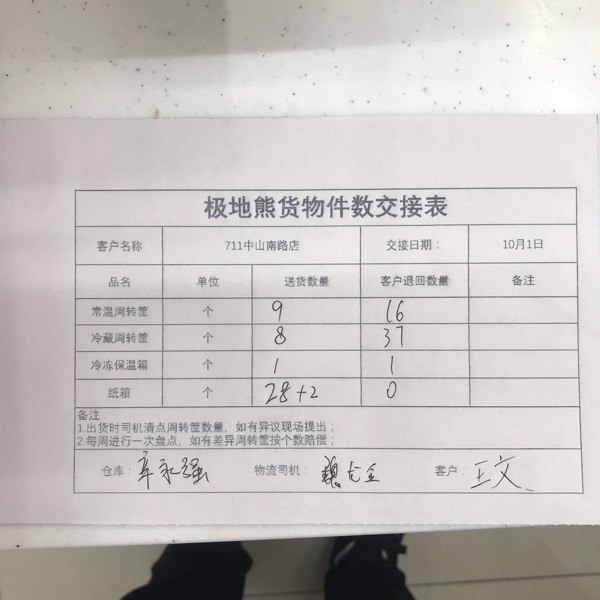 极地熊货物件数交接表
客户名称 711中山南路店 交接日期： 10月1日
品名 单位 送货数量 客户退回数量 备注
常温周转筐 个 9 16
冷藏周转筐 个 8 37
冷冻保温箱 个 1 1
纸箱 个 28+2 0
备注：
1.出货时司机清点周转筐数量，如有异议现场提出；
2.每周进行一次盘点，如有差异周转筐按个数赔偿；
仓库： 物流司机： 客户： 王文